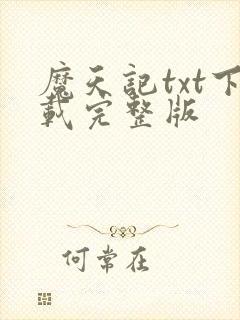 魔天記txt下
載完整版
何常在